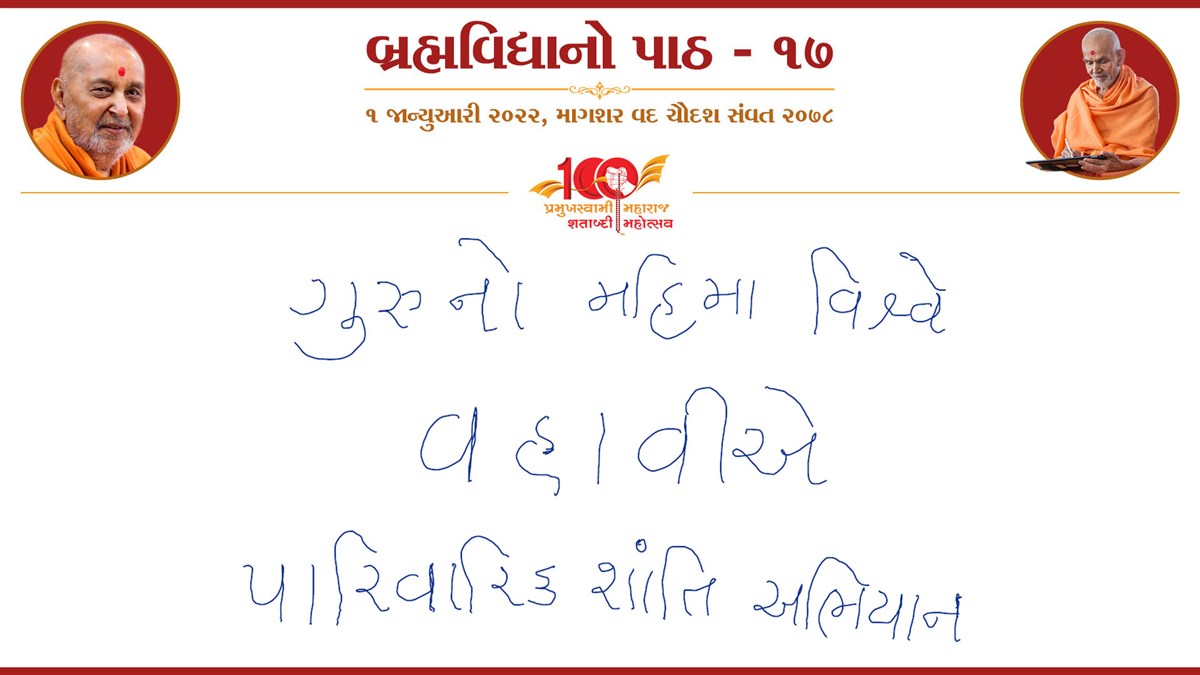 બ્રહ્મવિદ્યાનો પાઠ - ૧૭
૧ જાન્યુઆરી ૨૦૨૨, માગશર વદ ચૌદશ સંવત ૨૦૭૮
100
પ્રમુખસ્વામી મહારાજ
શતાબ્દી મહોત્સવ
ગુરુનો મહિમા વિશ્વે
વહાવીએ
પારિવારિક શાંતિ અભિયાન